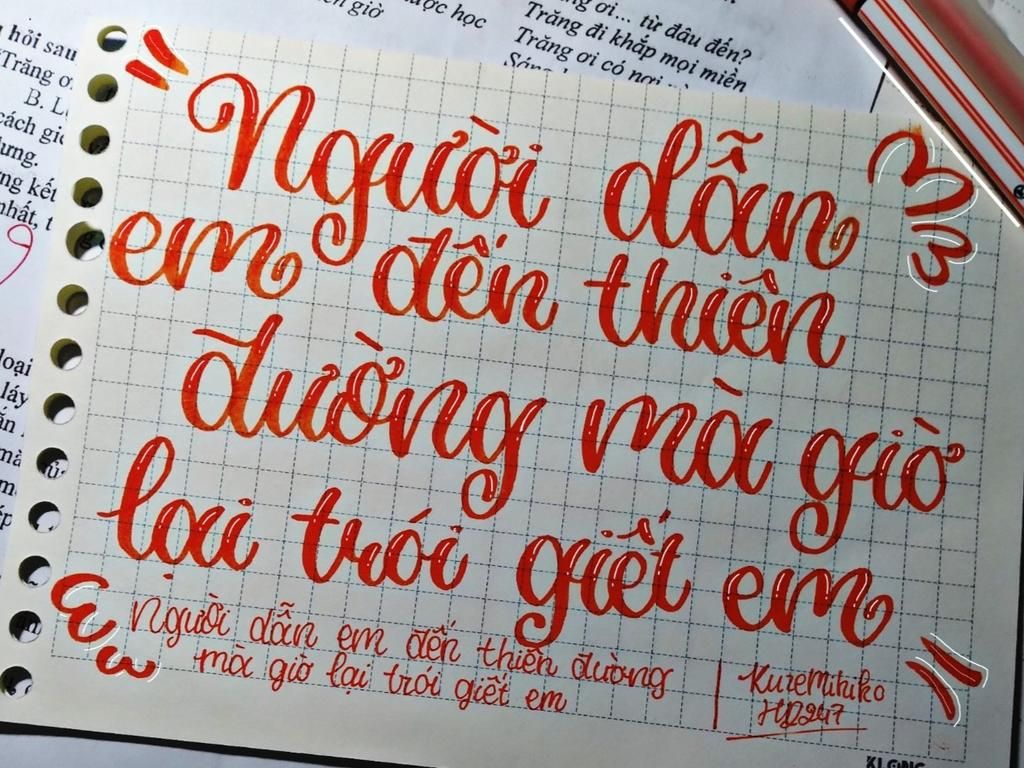 ược học
ến giờ
ơi... từ đâu đến?
Trăng đi khắp mọi miền
Trăng ơi có nơi
hỏi sau
Trăng ơ
B. L
cách gi
ùng.
ng kết
nhất, t
loại
láy
mà
Người dẫn
em đến thiên
đường mà giờ
lại trói giết em
Người dẫn em đến thiên đường
mà giờ lại trói giết em
HD247
KLONG